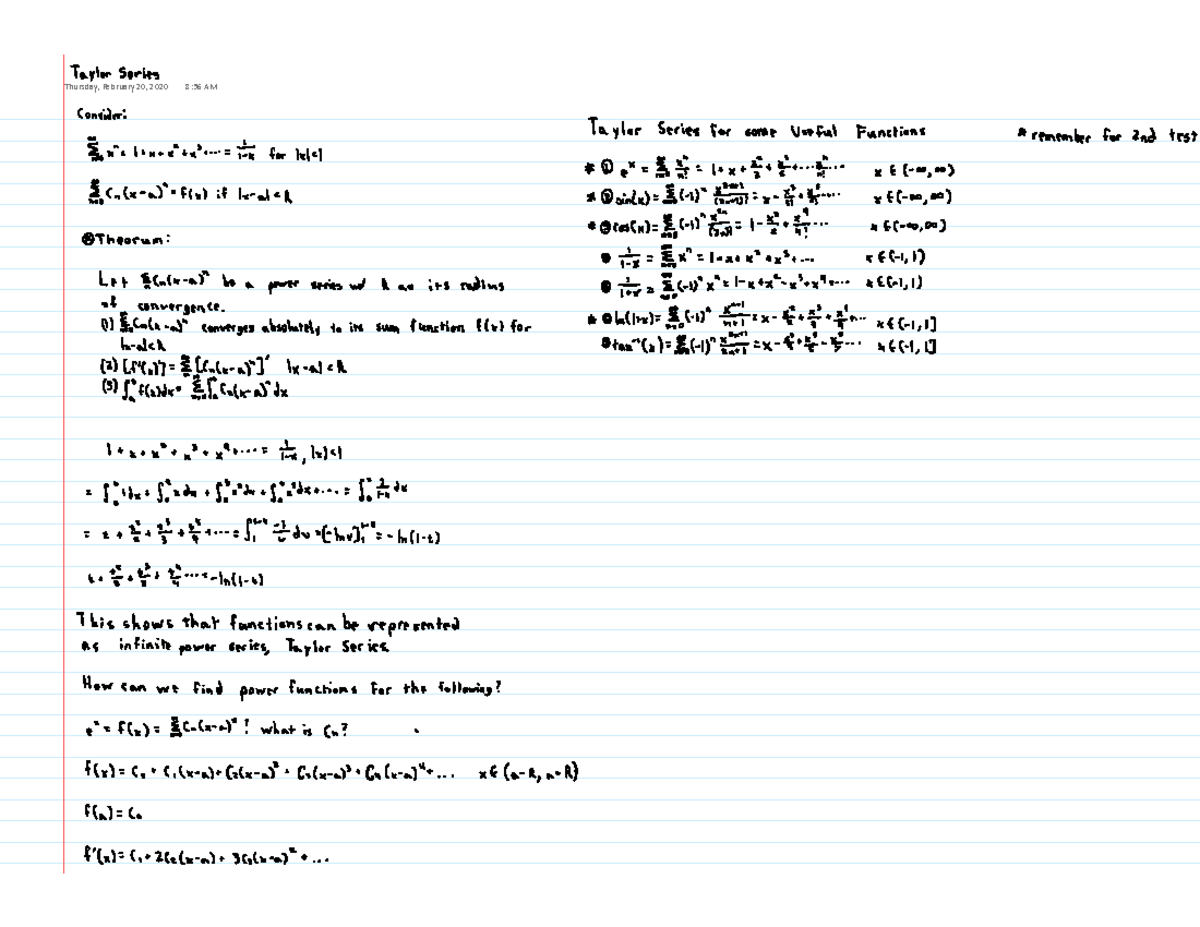 Taylor Series
Thursday, February 20, 2020 8:56 AM
Consider:
∑ xⁿ = 1+x+x²+x³+... = 1/(1-x) for |x|<1
∑ Cₙ(x-a)ⁿ = f(x) if |x-a|<R
Theorum:
Let ∑Cₙ(x-a)ⁿ be a power series w/ R as its radius
of convergence.
(1) ∑Cₙ(x-a)ⁿ converges absolutely to its sum function f(x) for
|x-a|<R
(2) [f'(x)] = ∑[Cₙ(x-a)ⁿ]' |x-a|<R
(3) ∫ f(x)dx = ∑∫ Cₙ(x-a)ⁿdx
1+x+x²+x³+x⁴+... = 1/(1-x), |x|<1
= ∫1dx + ∫xdx + ∫x²dx + ∫x³dx + ... = ∫ 1/(1-x) dx
= t + t²/2 + t³/3 + t⁴/4 + ... = ∫₁^(1-t) -1/u du = [-ln u]₁^(1-t) = -ln(1-t)
t + t²/2 + t³/3 + t⁴/4 ... = -ln(1-t)
This shows that functions can be represented
as infinite power series, Taylor Series
How can we find power functions for the following?
eˣ = f(x) = ∑Cₙ(x-a)ⁿ? what is Cₙ?
f(x) = C₀ + C₁(x-a) + C₂(x-a)² + C₃(x-a)³ + C₄(x-a)⁴ + ... x∈(a-R, a+R)
f(a) = C₀
f'(x) = C₁ + 2C₂(x-a) + 3C₃(x-a)² + ...
Taylor Series for some Useful Functions
* remember for 2nd test
* ① eˣ = ∑ xⁿ/n! = 1+x+x²/2+x³/3!+...xⁿ/n!... x∈(-∞,∞)
* ② sin(x) = ∑(-1)ⁿ x²ⁿ⁺¹/(2n+1)! = x - x³/3! + x⁵/5! ... x∈(-∞,∞)
* ③ cos(x) = ∑(-1)ⁿ x²ⁿ/(2n)! = 1 - x²/2 + x⁴/4! ... x∈(-∞,∞)
1/(1-x) = ∑xⁿ = 1+x+x²+x³+... x∈(-1,1)
1/(1+x) = ∑(-1)ⁿxⁿ = 1-x+x²-x³+x⁴... x∈(-1,1)
* ln(1+x) = ∑(-1)ⁿ xⁿ⁺¹/(n+1) = x - x²/2 + x³/3 + x⁴/4 ... x∈(-1,1]
tan⁻¹(x) = ∑(-1)ⁿ x²ⁿ⁺¹/(2n+1) = x - x³/3 + x⁵/5 - x⁷/7 ... x∈(-1,1]